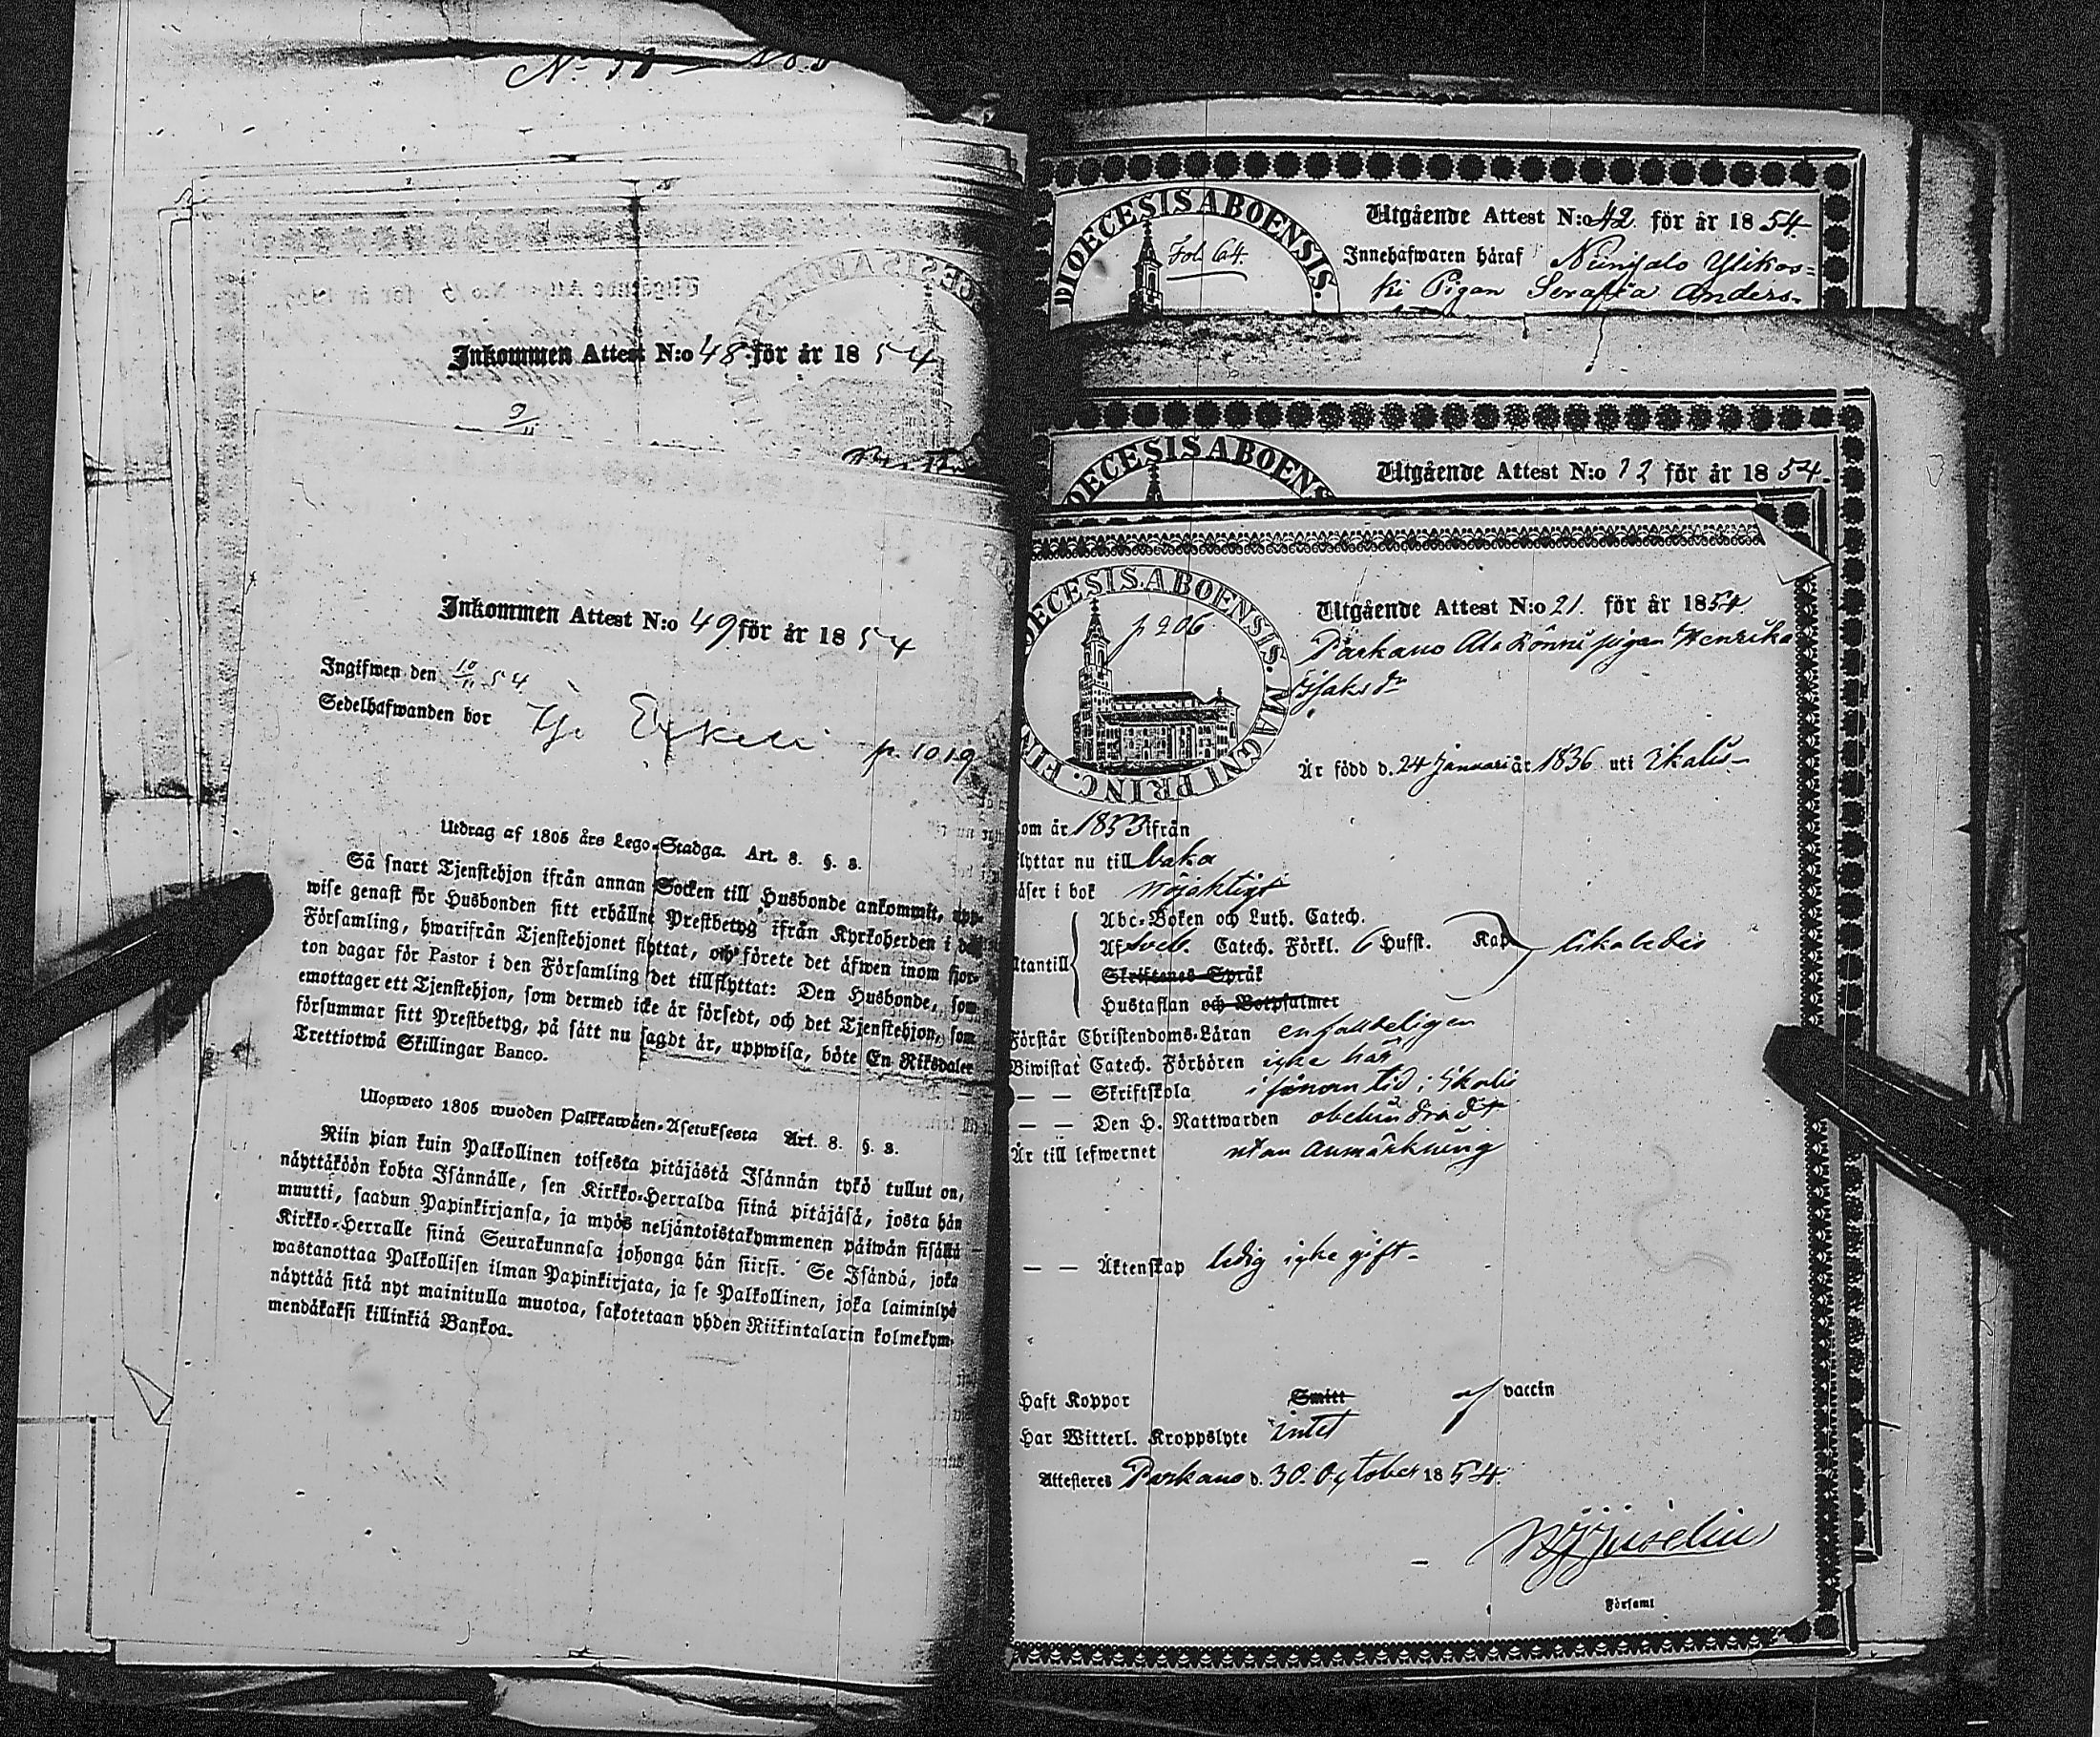 Inkommen Attest N:o 48 för år 1854
9/11
Inkommen Attest N:o 49 för år 1854
Ingifwen den 10/11 54
Sedelhafwanden bor
p. 1019
Utdrag af 1805 års Lego-Stadga. Art. 8. §. 3.
Så snart Tjenstehjon ifrån annan Socken till Husbonde ankommit, upp-
wise genast för Husbonden sitt erhållne Prestbetyg ifrån Kyrkoherden i den
Församling, hwarifrån Tjenstehjonet flyttat, och förete det äfwen inom fjor-
ton dagar för Pastor i den Församling det tillflyttat: Den Husbonde, som
emottager ett Tjenstehjon, som dermed icke är försedt, och det Tjenstehjon, som
försummar sitt Prestbetyg, på sätt nu sagdt är, uppwisa, böte En Riksdaler
Trettiotwå Skillingar Banco.
Ulosweto 1805 wuoden Palkkawäen-Asetuksesta Art. 8. §. 3.
Niin pian kuin Palkollinen toisesta pitäjästä Isännän tykö tullut on,
näyttäköön kohta Isännälle, sen Kirkko-Herralda siinä pitäjäsä, josta hän
muutti, saadun Papinkirjansa, ja myös neljäntoistakymmenen päiwän sisällä
Kirkko-Herralle siinä Seurakunnasa johonga hän siirsi. Se Isändä, joka
wastanottaa Palkollisen ilman Papinkirjata, ja se Palkollinen, joka laiminlyö
näyttää sitä nyt mainitulla muotoa, sakotetaan yhden Riikintalarin kolmekym-
mendäkaksi killinkiä Bankoa.
DIOECESIS ABOENSIS.
Fol. 64.
Utgående Attest N:o 42. för år 1854.
Innehafwaren häraf Ylikos=
ki Pigan Serafia Anders-
DIOECESIS ABOENS
Utgående Attest N:o 12 för år 1854.
DIOECESIS ABOENSIS. MAGNI PRINC. FIN
p 206
Utgående Attest N:o 21. för år 1854
Parkano Ala Rönni pigan Henrika
Isaks dr
Är född d. 24 Januari år 1836 uti Ikalis-
kom år 1853 ifrån
flyttar nu till baka
läser i bok nöjaktigt
Abc-Boken och Luth. Catech.
Af Sveb. Catech. Förkl. 6 Hufst. Kap likaledes
Utantill
Skriftenes Språk
Hustaflan och Botpsalmer
Förstår Christendoms-Läran enfaldeligen
Biwistat Catech. Förhören icke här
— — Skriftskola i sinom tid i Ikalis
— — Den H. Nattwarden obehindradt
Är till lefwernet utan anmärkning
— — Äktenskap ledig icke gift-
Haft Koppor Smitt af vaccin
Har Witterl. Kroppslyte intet
Attesteres Parkano d. 30. October 1854.
Församl